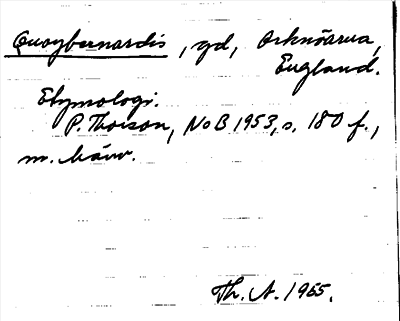 Quoybernardis, gd, Orknöarna,
England.
Etymologi.
P. Thorson, NoB 1953, s. 180 f.,
m. hänv.
Th. A. 1955.